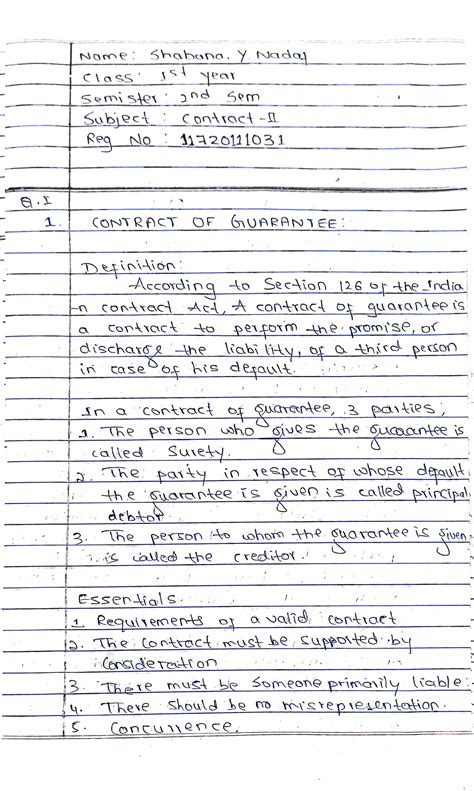 Name: Shabana. Y Nadaf
Class: 1st year
Semister: 2nd Sem
Subject: Contract-II
Reg No: 11720111031
Q.I
1. CONTRACT OF GUARANTEE:
Definition:
According to Section 126 of the India
n contract Act, A contract of guarantee is
a contract to perform the promise, or
discharge the liability, of a third person
in case of his default.
In a contract of guarantee, 3 parties,
1. The person who gives the guarantee is
called Surety.
2. The party in respect of whose default
the guarantee is given is called principal
debtor
3. The person to whom the guarantee is given
is called the creditor.
Essentials.
1. Requirements of a valid contract
2. The Contract must be supported by
Consideration
3. There must be Someone primarily liable.
4. There should be no misrepresentation.
5. Concurrence.